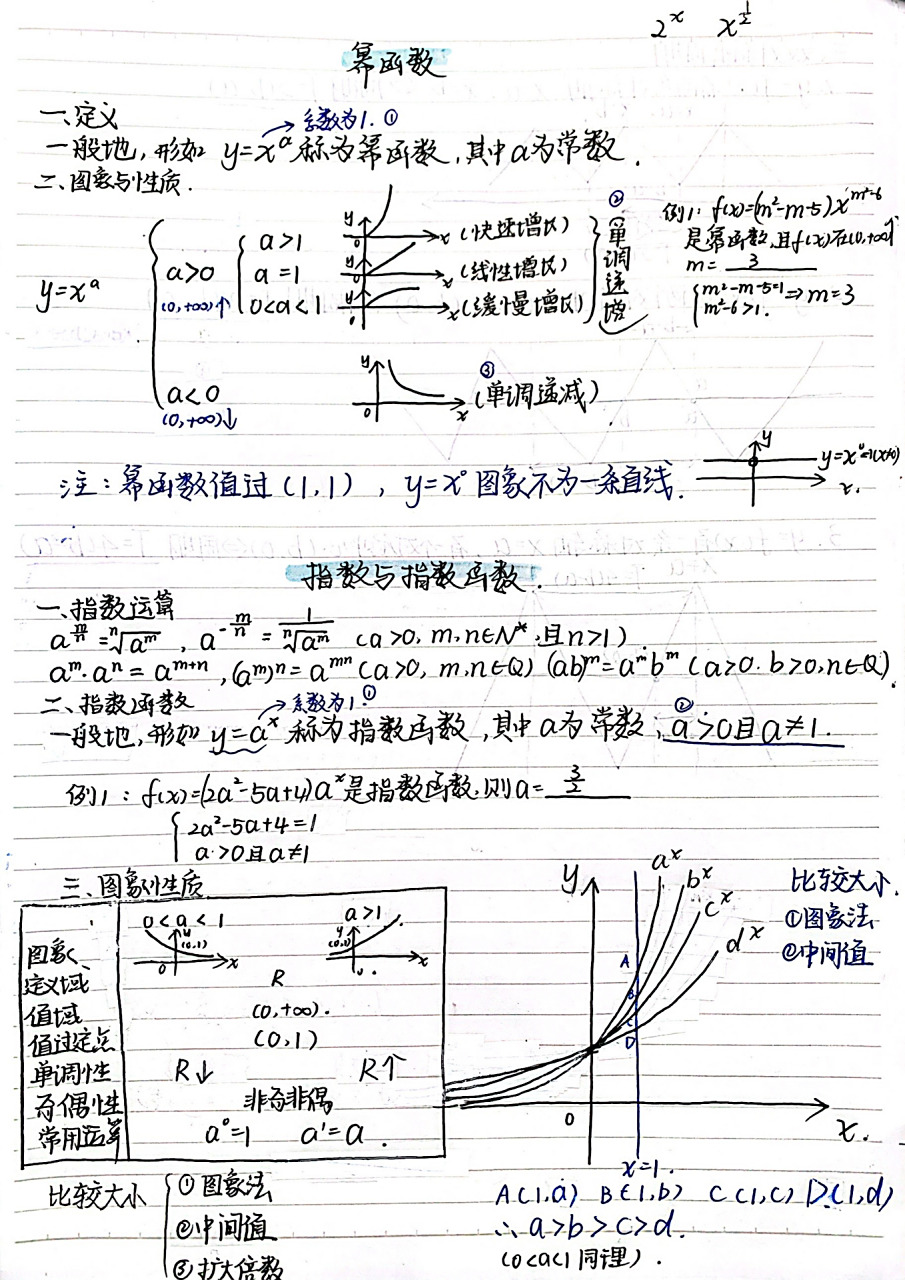 2^x x^{1/2}
幂函数
一、定义
→系数为1.①
一般地,形如 y=x^a 称为幂函数,其中a为常数.
二、图象与性质.
y=x^a
a>0
(0,+∞)↑
a>1
a=1
0<a<1
y
x (快速增长)
0
y
x (线性增长)
0
y
x (缓慢增长)
0
② 单调递增
例1: f(x)=(m²-m-5)x^{m²-6}
是幂函数,且f(x)在(0,+∞)↑
m= 3
m²-m-5=1
m²-6>1.
⇒m=3
a<0
(0,+∞)↓
y
0
x
③
(单调递减)
注: 幂函数值过(1,1), y=x⁰图象不为一条直线.
y
y=x⁰=1(x≠0)
x.
指数与指数函数.
一、指数运算
a^{m/n}=ⁿ√a^m , a^{-m/n}=1/ⁿ√a^m (a>0, m,n∈N*,且n>1)
a^m·a^n=a^{m+n}, (a^m)^n=a^{mn} (a>0, m,n∈Q) (ab)^m=a^m b^m (a>0.b>0,n∈Q).
二、指数函数
→系数为1.①
一般地,形如 y=a^x 称为指数函数,其中a为常数,②a>0且a≠1.
例1: f(x)=(2a²-5a+4)a^x是指数函数,则a= 3/2
2a²-5a+4=1
a>0且a≠1
三、图象性质
0<a<1 a>1
图象
y
(0,1)
x
y
(0,1)
x
0
定义域 R
值域 (0,+∞).
值过定点 (0,1)
单调性 R↓ R↑
奇偶性 非奇非偶
常用运算 a⁰=1 a¹=a.
y
a^x
b^x
c^x
d^x
A
B
C
D
0
x.
x=1.
比较大小.
①图象法
②中间值
A(1,a) B(1,b) C(1,c) D(1,d)
∴a>b>c>d.
(0<a<1同理).
比较大小
①图象法
②中间值
③扩大倍数